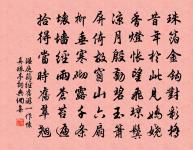 珠箔金鈎對彩橋
昔年於此見嬌嬈
香燈悵望飛瓊鬢
涼月殷勤碧玉簫
屏倚故窗山六扇
柳垂寒砌露千條
壞墻經雨蒼苔遍
拾得當時舊翠翹
溫庭筠經舊遊一作懷
真珠亭詞典網集